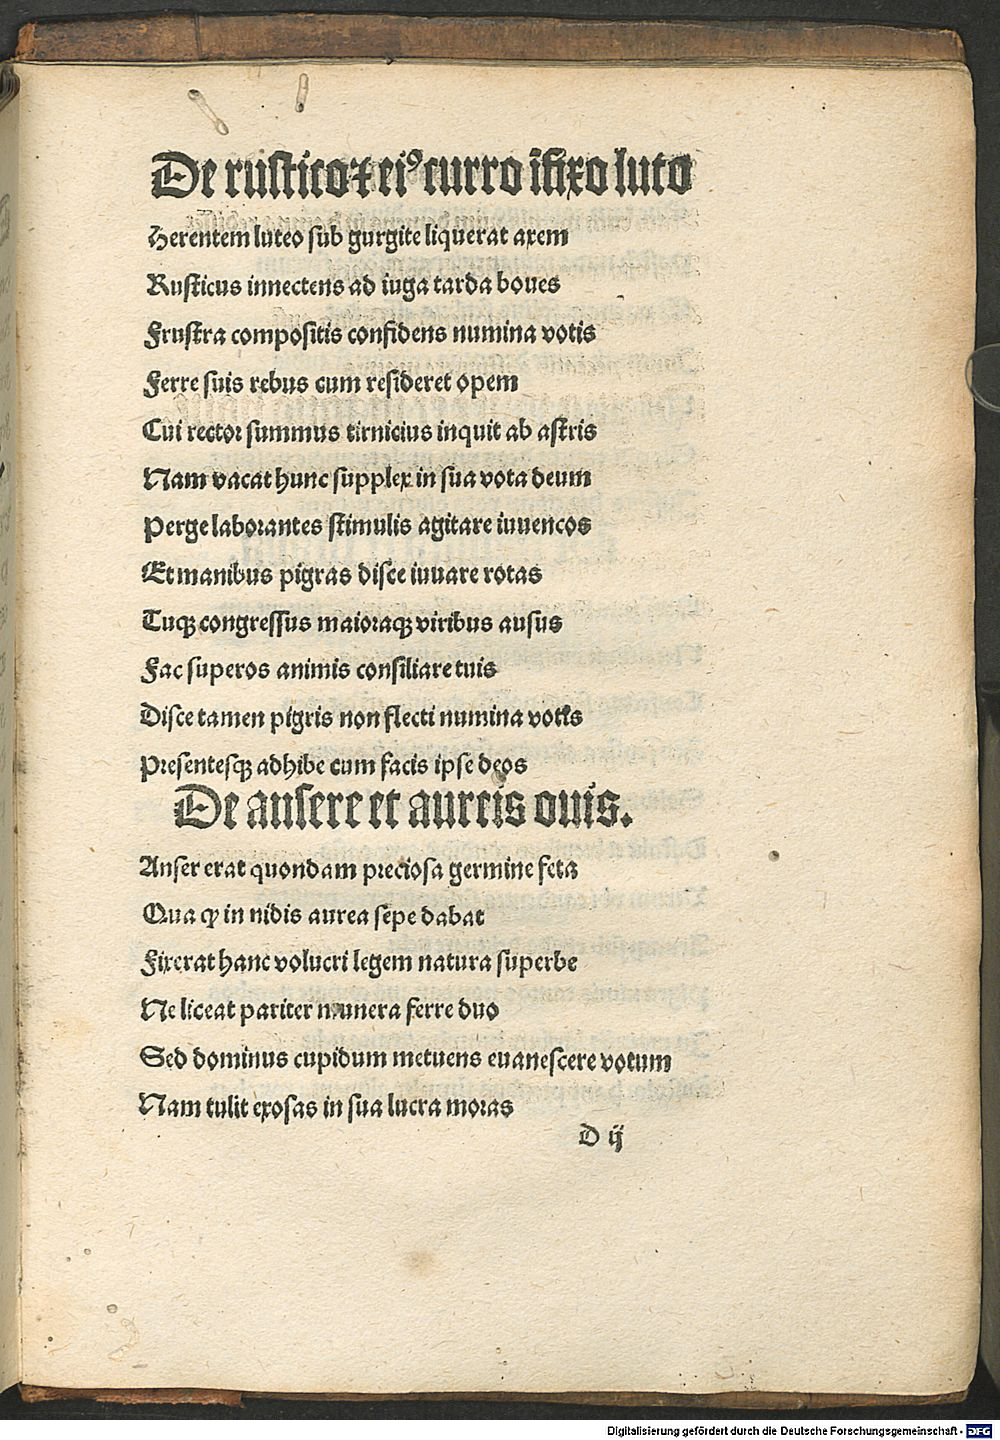 De rustico ⁊ eiꝰ curro ĩfixo luto
Herentem luteo sub gurgite liquerat axem
Rusticus innectens ad iuga tarda boues
Frustra compositis confidens numina votis
Ferre suis rebus cum resideret opem
Cui rector summus tirnicius inquit ab astris
Nam vacat hunc supplex in sua vota deum
Perge laborantes stimulis agitare iuuencos
Et manibus pigras disce iuuare rotas
Tuqꝫ congressus maioraqꝫ viribus ausus
Fac superos animis consiliare tuis
Disce tamen pigris non flecti numina votis
Presentesqꝫ adhibe cum facis ipse deos
De ansere et aureis ouis.
Anser erat quondam preciosa germine feta
Qua ꝙ in nidis aurea sepe dabat
Fixerat hanc volucri legem natura superbe
Ne liceat pariter munera ferre duo
Sed dominus cupidum metuens euanescere votum
Nam tulit exosas in sua lucra moras
D ij
Digitalisierung gefördert durch die Deutsche Forschungsgemeinschaft - DFG